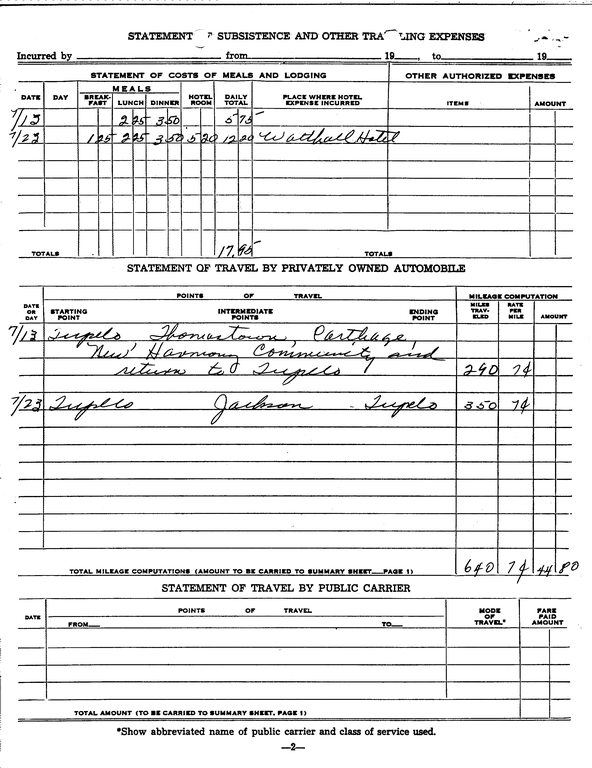 STATEMENT SUBSISTENCE AND OTHER TRA LING EXPENSES
Incurred by from 19 , to 19
STATEMENT OF COSTS OF MEALS AND LODGING OTHER AUTHORIZED EXPENSES
DATE DAY MEALS BREAK-FAST LUNCH DINNER HOTEL ROOM DAILY TOTAL PLACE WHERE HOTEL EXPENSE INCURRED ITEMS AMOUNT
7/13 2 25 3 50 5 75
7/23 1 25 2 25 3 50 5 20 12 20 Walthall Hotel
TOTALS 17.95 TOTALS
STATEMENT OF TRAVEL BY PRIVATELY OWNED AUTOMOBILE
POINTS OF TRAVEL MILEAGE COMPUTATION
DATE OR DAY STARTING POINT INTERMEDIATE POINTS ENDING POINT MILES TRAV-ELED RATE PER MILE AMOUNT
7/13 Tupelo Thomastown, Carthage,
New Harmony Community and
return to Tupelo 290 7¢
7/23 Tupelo Jackson - Tupelo 350 7¢
TOTAL MILEAGE COMPUTATIONS (AMOUNT TO BE CARRIED TO SUMMARY SHEET PAGE 1) 640 7¢ 44 80
STATEMENT OF TRAVEL BY PUBLIC CARRIER
DATE POINTS OF TRAVEL MODE OF TRAVEL* FARE PAID AMOUNT
FROM TO
TOTAL AMOUNT (TO BE CARRIED TO SUMMARY SHEET, PAGE 1)
*Show abbreviated name of public carrier and class of service used.
—2—